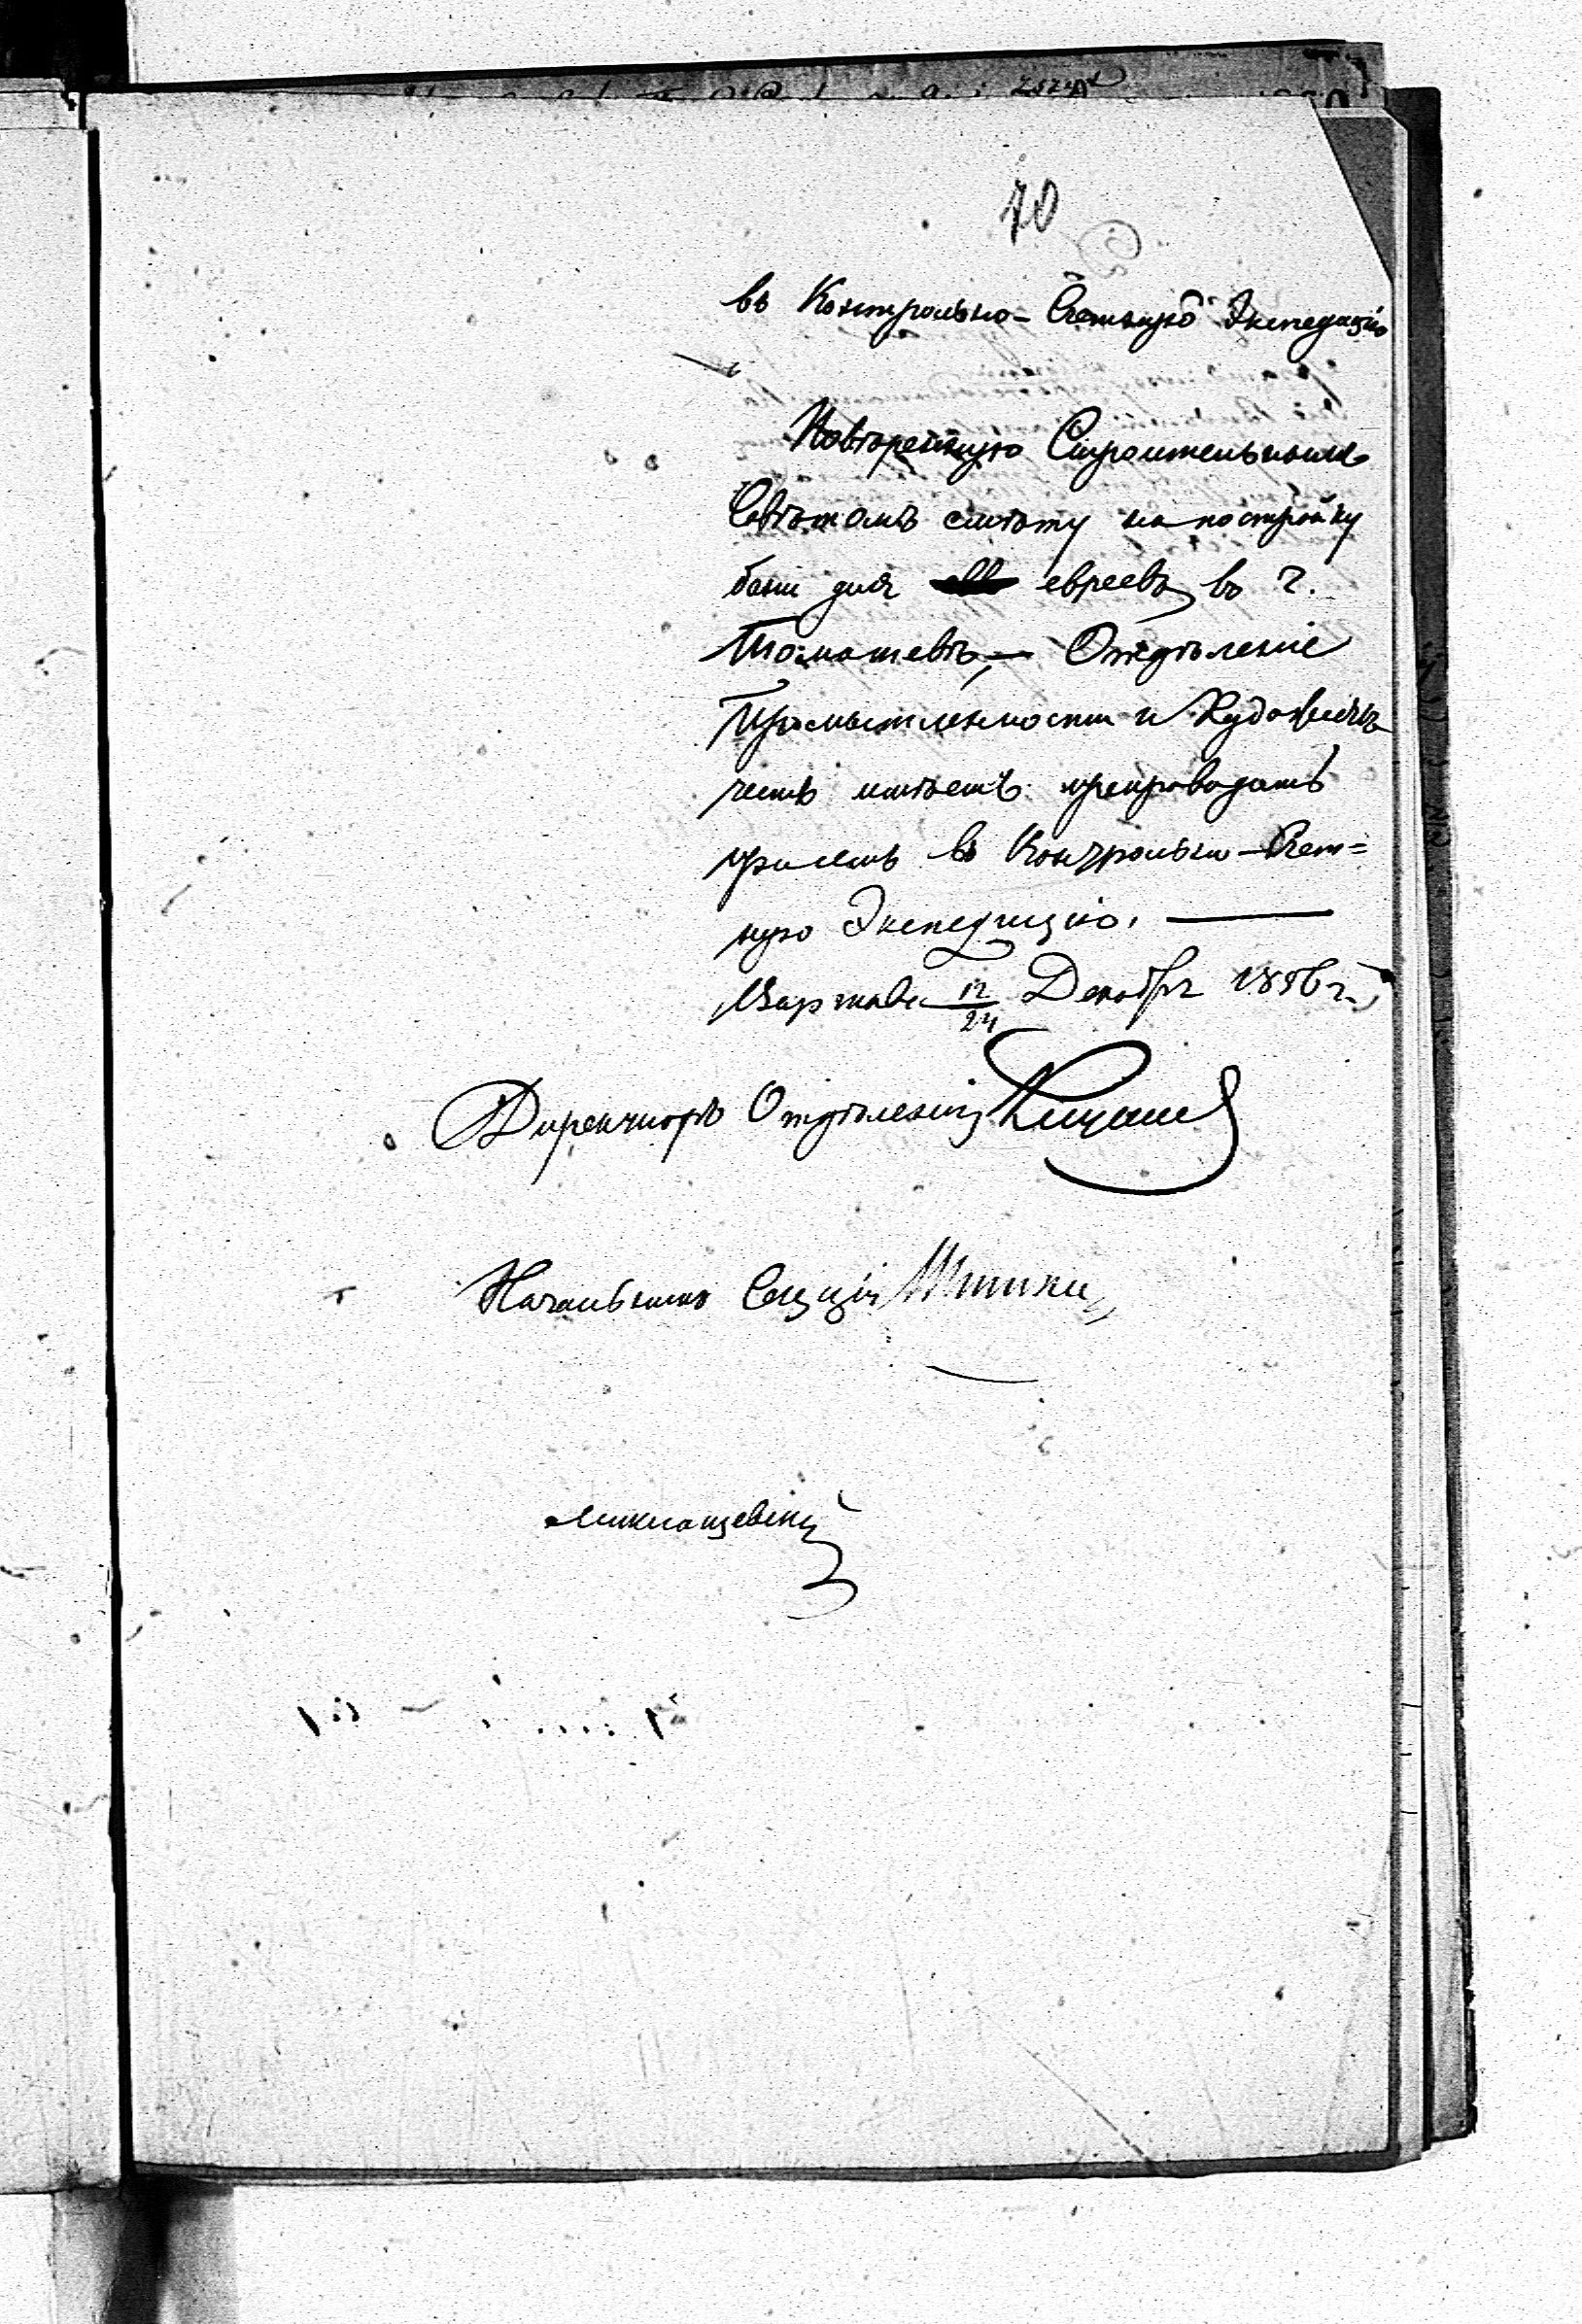 70
въ Контрольно-Счетную Экспедицію
Повѣренную Строительнымъ
Совѣтомъ смѣту на постройку
бани для евреевъ въ г.
Томашевѣ, — Отдѣленіе
Промышленности и Художествъ
честь имѣетъ препроводить
при семъ въ Контрольно-Счет=
ную Экспедицію. —
Варшава 12/24 Декабря 1856 г.
Директоръ Отдѣленія
Начальникъ Секціи